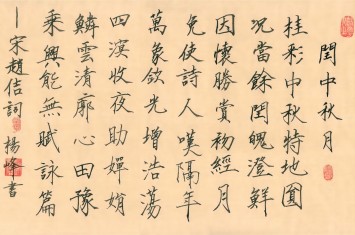 閏中秋月
桂彩中秋特地圓
況當餘閏魄澄鮮
因懷勝賞初經月
免使詩人嘆隔年
萬象斂光增浩蕩
四溟收夜助嬋娟
鱗雲清廓心田豫
乘興能無賦詠篇
—宋趙佶詞 楊峰書